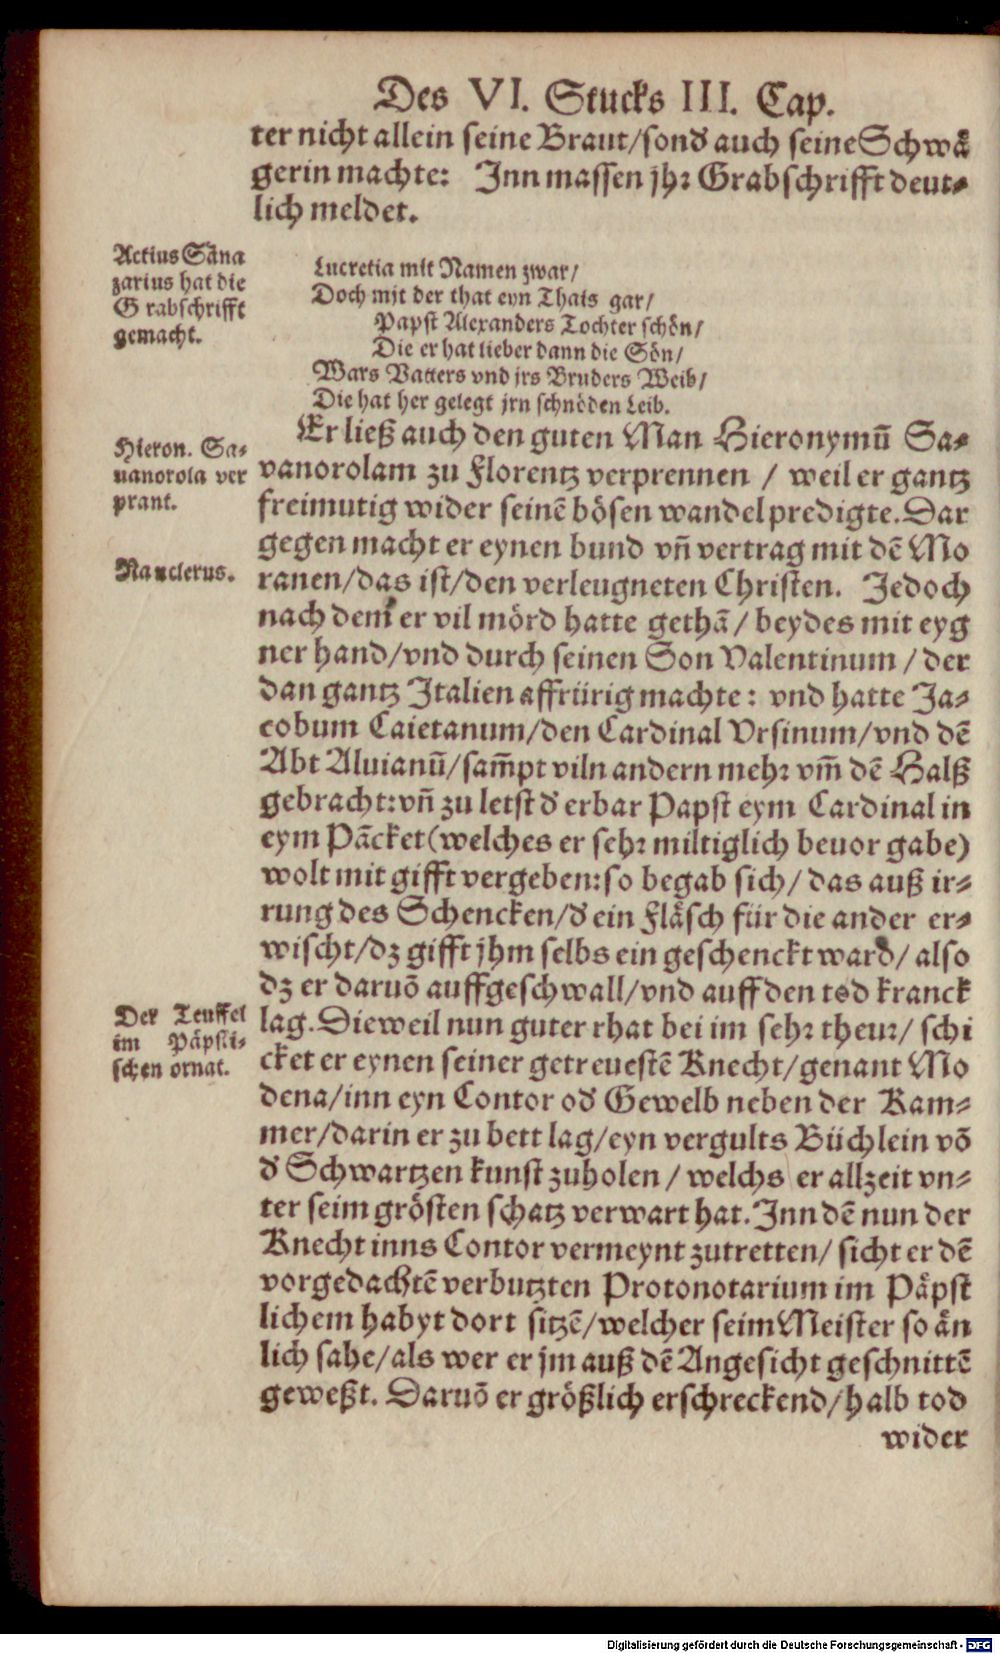 Des VI. Stucks III. Cap.
ter nicht allein seine Braut/sond̕ auch seine Schwä
gerin machte: Inn massen jhr Grabschrifft deut-
lich meldet.
Actius Sāna
zarius hat die
Grabschrifft
gemacht.
Lucretia mit Namen zwar/
Doch mit der that eyn Thais gar/
Papst Alexanders Tochter schön/
Die er hat lieber dann die Sön/
Wars Vatters vnd jrs Bruders Weib/
Die hat her gelegt jrn schnöden Leib.
Hieron. Sa-
uanorola ver
prant.
Nauclerus.
Er ließ auch den guten Man Hieronymū Sa-
vanorolam zu Florentz verprennen / weil er gantz
freimutig wider seinē bösen wandel predigte. Dar
gegen macht er eynen bund vñ vertrag mit dē Mo
ranen/das ist/den verleugneten Christen. Jedoch
nach dem er vil mörd hatte gethā / beydes mit eyg
ner hand/vnd durch seinen Son Valentinum / der
dan gantz Italien affrürig machte: vnd hatte Ja-
cobum Caietanum/den Cardinal Vrsinum/vnd dē
Abt Aluianū/sam̄pt viln andern mehr vm̄ dē Halß
gebracht: vñ zu letst d̕ erbar Papst eym Cardinal in
eym Pācket (welches er sehr miltiglich beuor gabe)
wolt mit gifft vergeben: so begab sich/ das auß ir-
rung des Schencken/d̕ ein Fläsch für die ander er-
wischt/dz gifft jhm selbs ein geschenckt ward/ also
dz er daruō auffgeschwall/vnd auff den tod kranck
Der Teuffel
im Päpsti-
schen ornat.
lag. Dieweil nun guter rhat bei im sehr theur/ schi
cket er eynen seiner getreuestē Knecht/genant Mo
dena/inn eyn Contor od̕ Gewelb neben der Kam-
mer/darin er zu bett lag/eyn vergults Büchlein vō
d̕ Schwartzen kunst zuholen / welchs er allzeit vn-
ter seim grösten schatz verwart hat. Inn dē nun der
Knecht inns Contor vermeynt zutretten/ sicht er dē
vorgedachtē verbutzten Protonotarium im Päpst
lichem habyt dort sitzē/welcher seim Meister so än
lich sahe/als wer er jm auß dē Angesicht geschnittē
geweßt. Daruō er größlich erschreckend/halb tod
wider
Digitalisierung gefördert durch die Deutsche Forschungsgemeinschaft - DFG